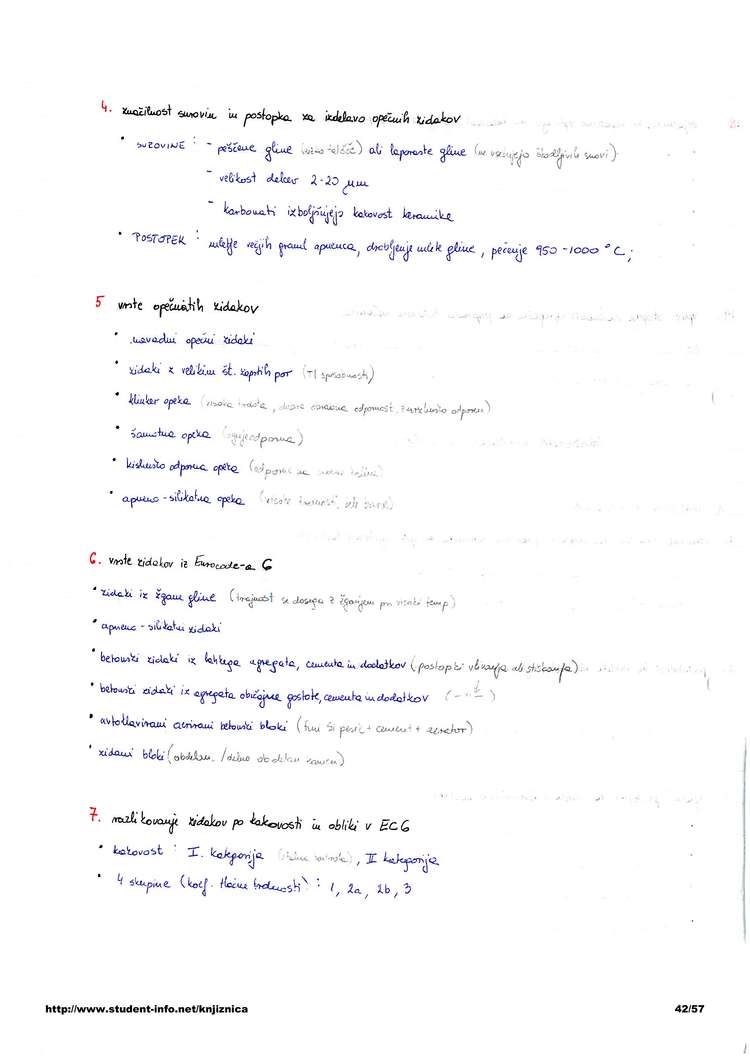 4. značilnost surovin in postopka za izdelavo opečnih zidakov
• SUROVINE : - peščene gline ali laporaste gline (ne vsebujejo škodljivih snovi)
- velikost delcev 2-20 µm
- karbonati izboljšujejo kakovost keramike
• POSTOPEK : mletje večjih granul apnenca, drobljenje mlete gline, pečenje 950-1000 °C;
5 vrste opečnatih zidakov
• navadni opečni zidaki
• zidaki z velikim št. zaprtih por (TI sposobnosti)
• klinker opeka (visoka trdota, dobra obrabna odpornost, zmrzlinsko odporen)
• šamotna opeka (ognjeodporna)
• kislinsko odporna opeka (odporna na
• apneno-silikatna opeka (visoke trdnosti,
6. vrste zidakov iz Eurocode-a 6
• zidaki iz žgane gline (trajnost se dosega z žganjem pri visoki temp)
• apneno-silikatni zidaki
• betonski zidaki iz lahkega agregata, cementa in dodatkov (postopki vibriranja ali stiskanja)
• betonski zidaki iz agregata običajne gostote, cementa in dodatkov (-"-)
• avtoklavirani aerirani betonski bloki (fini Si pesek + cement + aerator)
• zidani bloki (obdelan / delno obdelan kamen)
7. razlikovanje zidakov po kakovosti in obliki v EC6
• kakovost : I. kategorija (stalna kontrola), II kategorija
• 4 skupine (koef. tlačne trdnosti) : 1, 2a, 2b, 3
http://www.student-info.net/knjiznica
42/57